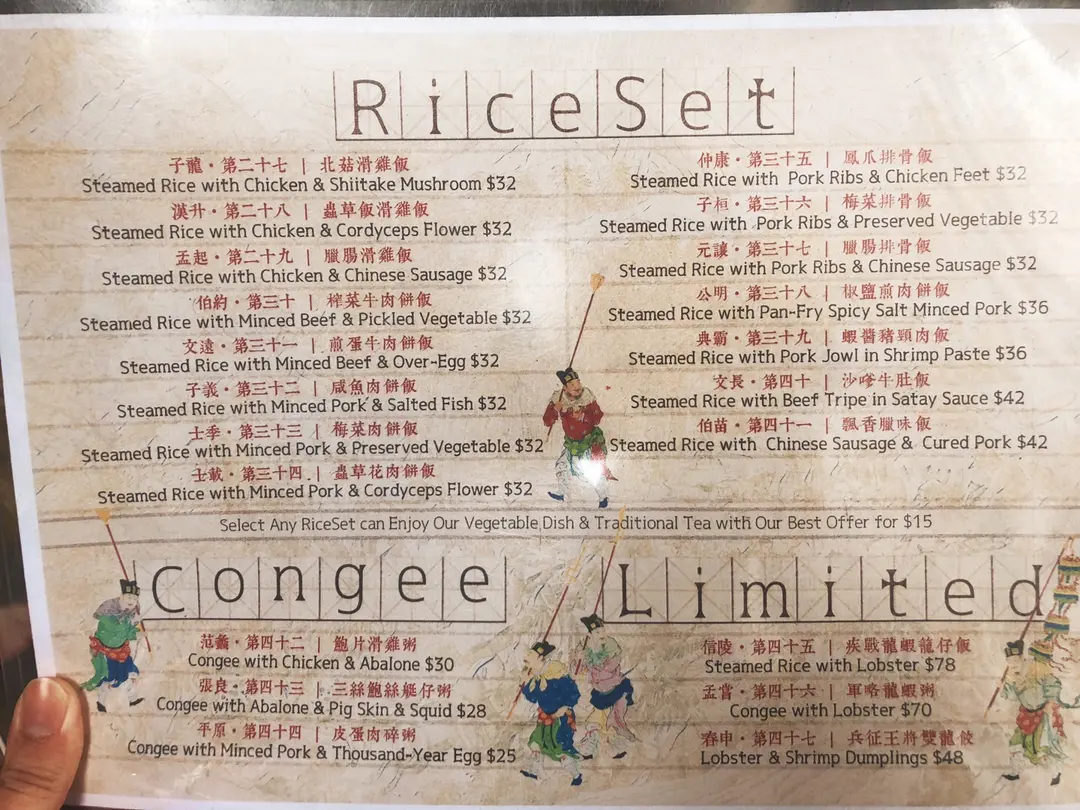 RiceSet
子龍·第二十七 | 北菇滑雞飯
Steamed Rice with Chicken & Shiitake Mushroom $32
漢升·第二十八 | 蟲草飯滑雞飯
Steamed Rice with Chicken & Cordyceps Flower $32
孟起·第二十九 | 臘腸滑雞飯
Steamed Rice with Chicken & Chinese Sausage $32
伯約·第三十 | 榨菜牛肉餅飯
Steamed Rice with Minced Beef & Pickled Vegetable $32
文遠·第三十一 | 煎蛋牛肉餅飯
Steamed Rice with Minced Beef & Over-Egg $32
子義·第三十二 | 咸魚肉餅飯
Steamed Rice with Minced Pork & Salted Fish $32
士季·第三十三 | 梅菜肉餅飯
Steamed Rice with Minced Pork & Preserved Vegetable $32
士載·第三十四 | 蟲草花肉餅飯
Steamed Rice with Minced Pork & Cordyceps Flower $32
仲康·第三十五 | 鳳爪排骨飯
Steamed Rice with Pork Ribs & Chicken Feet $32
子桓·第三十六 | 梅菜排骨飯
Steamed Rice with Pork Ribs & Preserved Vegetable $32
元讓·第三十七 | 臘腸排骨飯
Steamed Rice with Pork Ribs & Chinese Sausage $32
公明·第三十八 | 椒鹽煎肉餅飯
Steamed Rice with Pan-Fry Spicy Salt Minced Pork $36
典霸·第三十九 | 蝦醬豬頸肉飯
Steamed Rice with Pork Jowl in Shrimp Paste $36
文長·第四十 | 沙嗲牛肚飯
Steamed Rice with Beef Tripe in Satay Sauce $42
伯苗·第四十一 | 飄香臘味飯
Steamed Rice with Chinese Sausage & Cured Pork $42
Select Any RiceSet can Enjoy Our Vegetable Dish & Traditional Tea with Our Best Offer for $15
Congee
范蠡·第四十二 | 鮑片滑雞粥
Congee with Chicken & Abalone $30
張良·第四十三 | 三絲鮑絲艇仔粥
Congee with Abalone & Pig Skin & Squid $28
平原·第四十四 | 皮蛋肉碎粥
Congee with Minced Pork & Thousand-Year Egg $25
Limited
信陵·第四十五 | 疾戰龍蝦龍仔飯
Steamed Rice with Lobster $78
孟嘗·第四十六 | 軍略龍蝦粥
Congee with Lobster $70
春申·第四十七 | 兵征王將雙龍餃
Lobster & Shrimp Dumplings $48